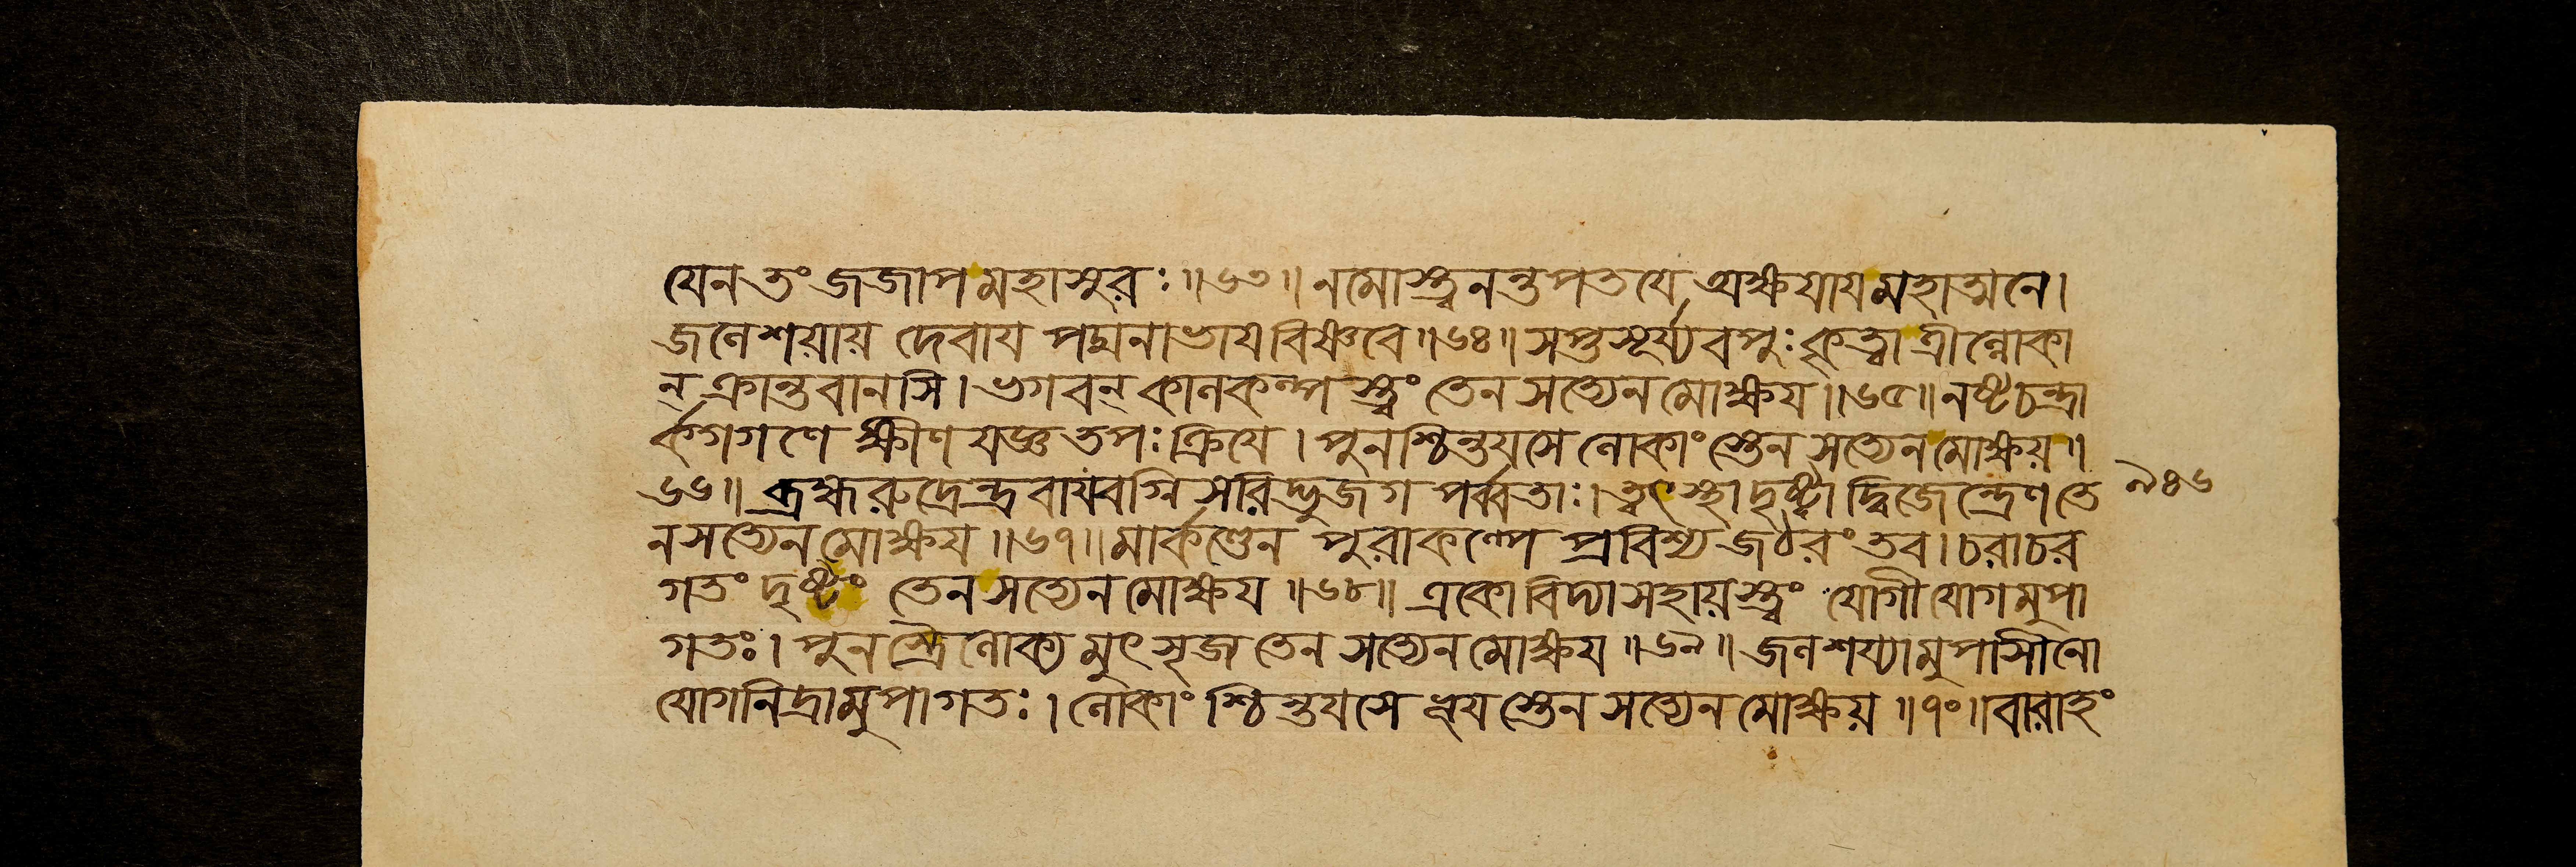 যেন তং জজাপ মহাসুরঃ ॥৬৩॥ নমোস্ত্বনন্তপতযে অক্ষযাযমহাত্মনে।
জলেশয়ায় দেবায পদ্মনাভাযবিষ্ণবে ॥৬৪॥ সপ্তসূর্য্যবপুঃ কৃত্বা ত্রীল্লোকা
ন্ ক্রান্তবানসি। ভগবন্ কালকল্পস্ত্বং তেন সত্যেন মোক্ষয ॥৬৫॥ নষ্টচন্দ্রা
র্কগগণে ক্ষীণ যজ্ঞতপঃক্রিযে। পুনশ্চিন্তযসে লোকাংস্তেন সত্যেন মোক্ষয় ॥
৬৬॥ ব্রহ্মরুদ্রেন্দ্রবায়্বগ্নিসরিদ্ভুজগ পর্ব্বতাঃ। ত্বৎস্থা দৃষ্ট্বা দ্বিজেন্দ্রেণ তে ৯৪৬
ন সত্যেন মোক্ষয ॥৬৭॥ মার্কণ্ডেন পুরাকল্পে প্রবিশ্য জঠরং তব। চরাচর
গতং দৃষ্টং তেন সত্যেন মোক্ষয ॥৬৮॥ একো বিদ্যাসহায়স্ত্বং যোগী যোগমুপা
গতঃ। পুনস্ত্রৈলোক্যমুৎসৃজ তেন সত্যেন মোক্ষয ॥৬৯॥ জলশয্যামুপাসীনো
যোগনিদ্রামুপাগতঃ। লোকাংশ্চিন্তযসে ভূযস্তেন সত্যেন মোক্ষয় ॥৭০॥ বারাহং